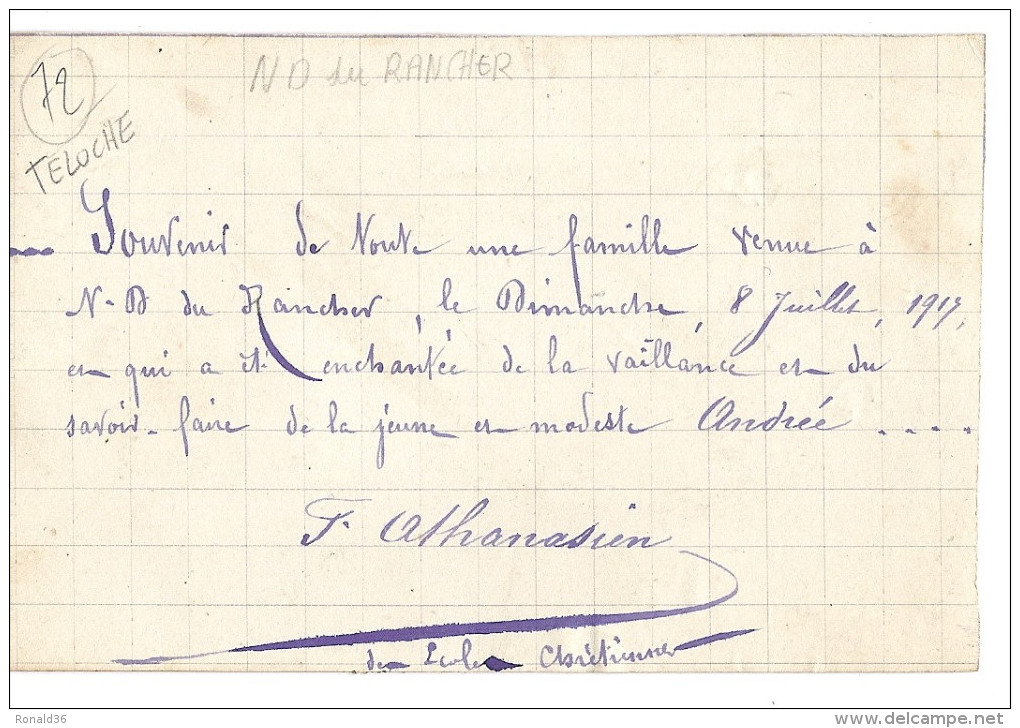 72
TELOCHE
ND du RANCHER
Souvenir de toute une famille venue à
N-D du Rancher, le Dimanche, 8 Juillet, 1917,
et qui a été enchantée de la vaillance et du
savoir-faire de la jeune et modeste Andrée ....
F. Athanasien
des Ecoles Chrétiennes
Ronald36
www.delcampe.net